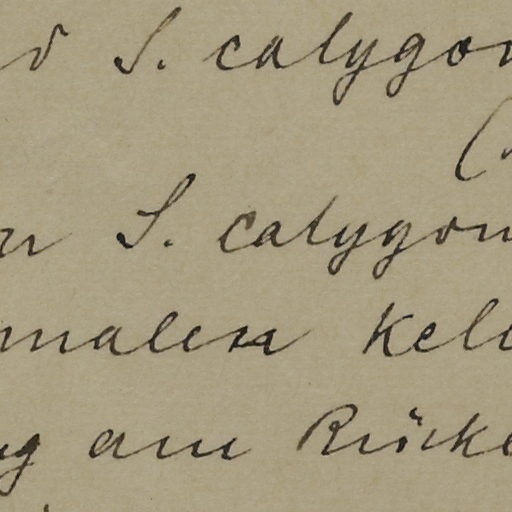 S. calygon
(
S. calygon
malen Kel
am Rücke